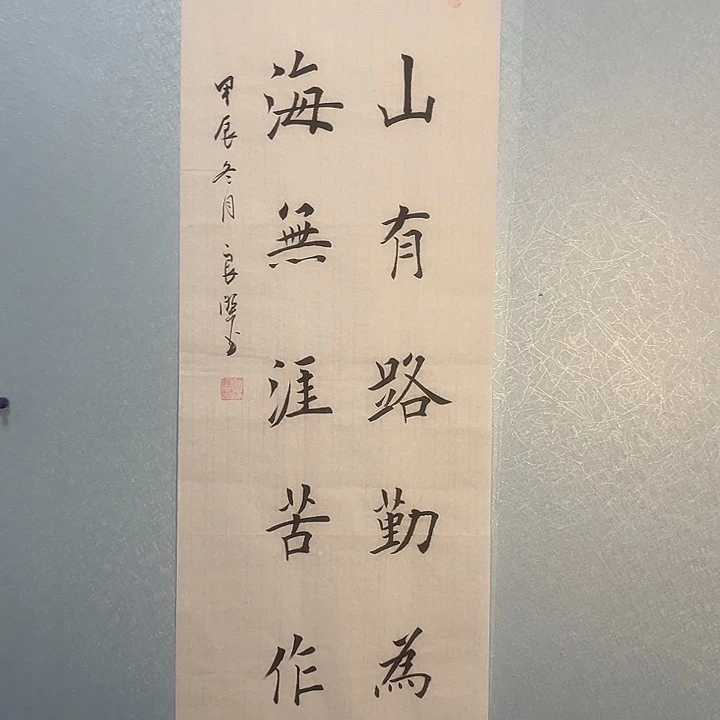 山有路勤為
海無涯苦作
甲辰冬月 良